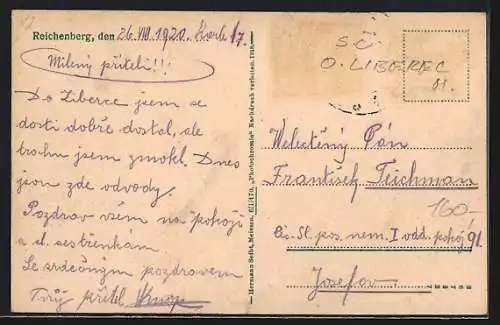 Reichenberg, den 26 VIII 1920.
Milený příteli!!!
Do Liberce jsem se
dosti dobře dostal, ale
trochu jsem zmokl. Dnes
jsou zde odvody.
Pozdrav všem na pokoji
a sl. sestřenkám.
Se srdečným pozdravem
Tvůj přítel
Hermann Seibt, Meissen. "Photochromie" Nachdruck verboten.
S. Č.
O. LIBEREC
01.
Velectěný Pán
František Teichman
160,-
čís. 51. pos. nem. I odd. pokoj 91.
Josefov